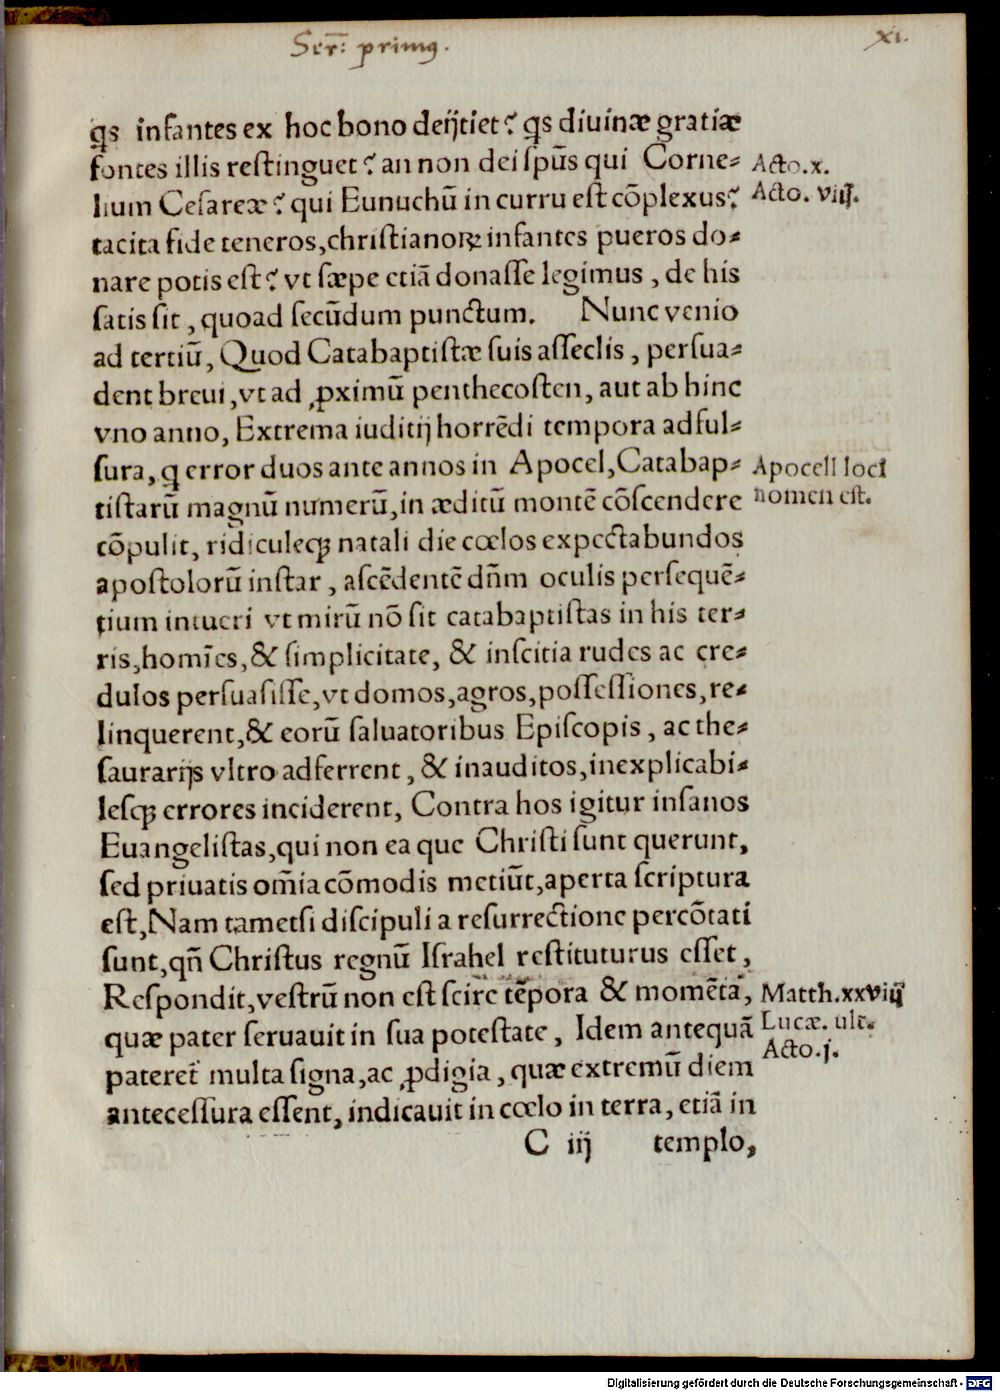 Ser̄: primꝰ.
xi.
q̄s infantes ex hoc bono deijciet? q̄s diuinæ gratiæ
fontes illis restinguet? an non dei spūs qui Corne-
lium Cesareæ? qui Eunuchū in curru est cōplexus?
tacita fide teneros, christianoꝝ infantes pueros do-
nare potis est? vt sæpe etiā donasse legimus, de his
satis sit, quoad secūdum punctum. Nunc venio
ad tertiū, Quod Catabaptistæ suis asseclis, persua-
dent breui, vt ad ꝓximū penthecosten, aut ab hinc
vno anno, Extrema iuditij horrēdi tempora adful-
sura, q error duos ante annos in Apocel, Catabap-
tistarū magnū numerū, in æditū montē cōscendere
cōpulit, ridiculeqꝫ natali die cœlos expectabundos
apostolorū instar, ascēdentē dñm oculis persequē-
tium intueri vt mirū nō sit catabaptistas in his ter-
ris, homīes, & simplicitate, & inscitia rudes ac cre-
dulos persuasisse, vt domos, agros, possessiones, re-
linquerent, & eorū saluatoribus Episcopis, ac the-
saurarijs vltro adferrent, & inauditos, inexplicabi-
lesqꝫ errores inciderent, Contra hos igitur insanos
Euangelistas, qui non ea que Christi sunt querunt,
sed priuatis om̄ia cōmodis metiūt, aperta scriptura
est, Nam tametsi discipuli a resurrectione percōtati
sunt, qñ Christus regnū Israhel restituturus esset,
Respondit, vestrū non est scire tēpora & momēta,
quæ pater seruauit in sua potestate, Idem antequā
pateret̄ multa signa, ac ꝓdigia, quæ extremū diem
antecessura essent, indicauit in cœlo in terra, etiā in
C iij templo,
Acto. x.
Acto. viij.
Apocell loci
nomen est.
Matth. xxviij
Lucæ. ult.
Acto. j.
Digitalisierung gefördert durch die Deutsche Forschungsgemeinschaft - DFG